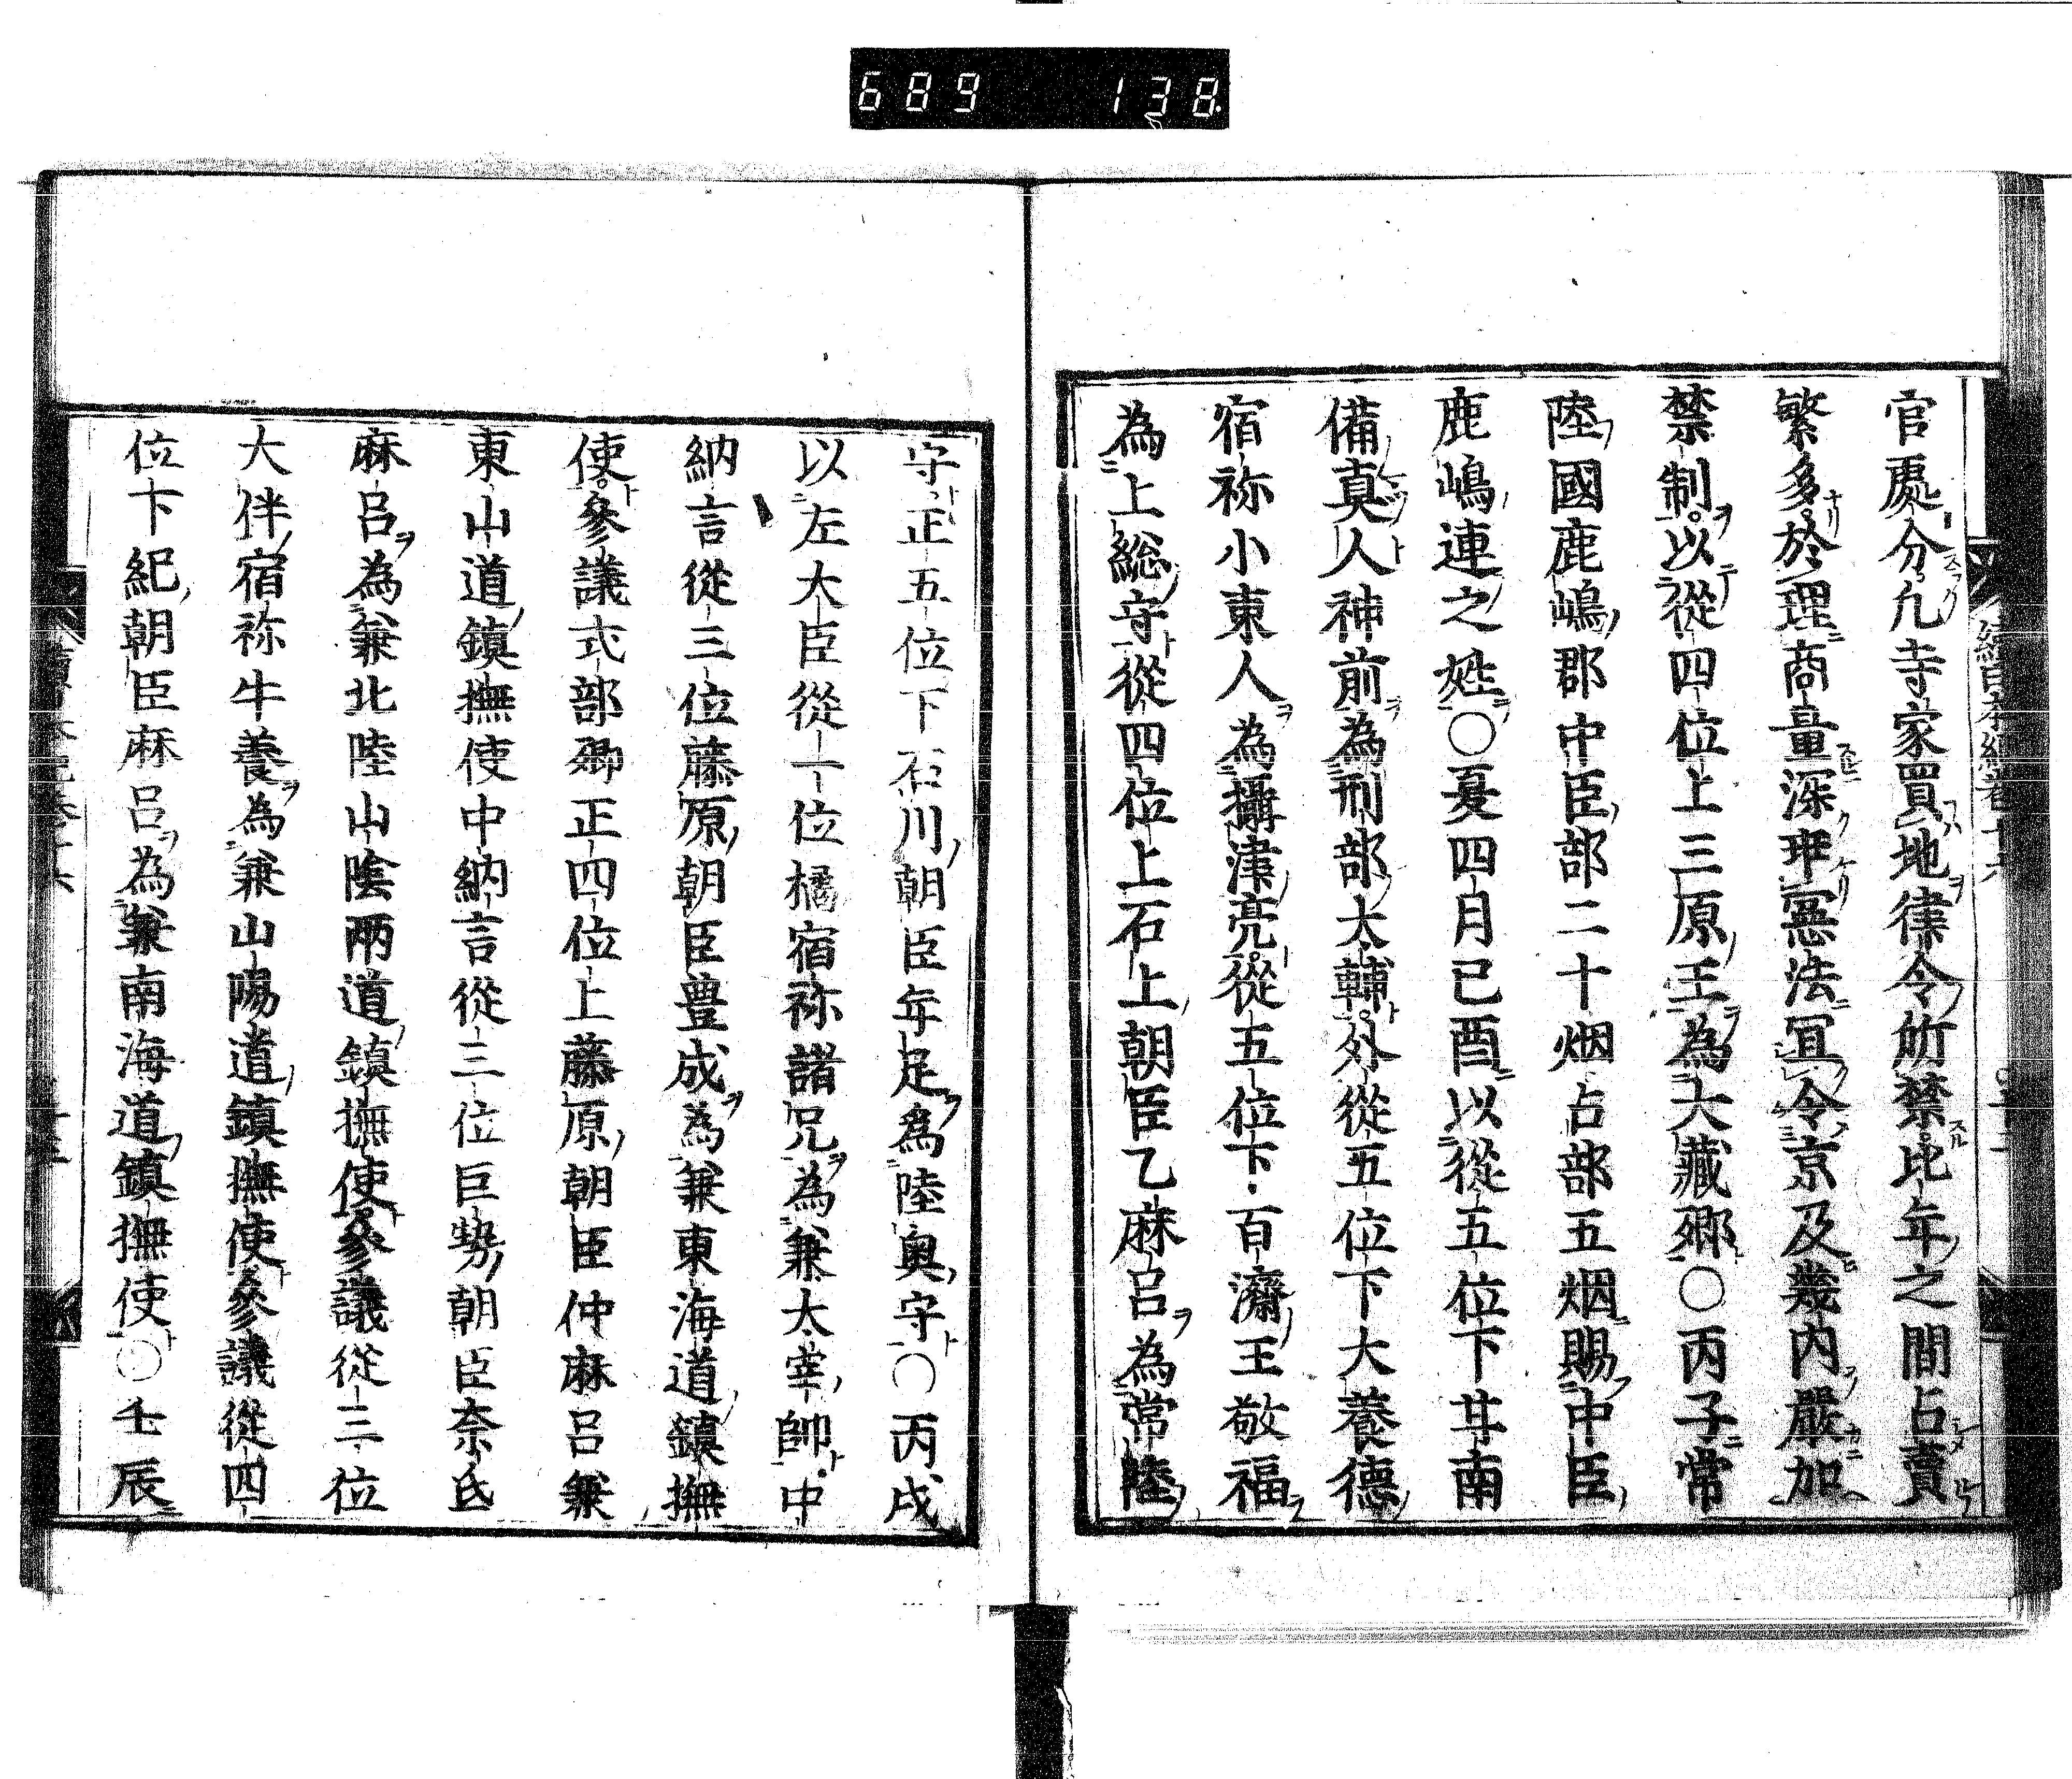 689 138
官處分凢寺家買地律令所禁比年之間占賣
繁多於理商量深乖憲法冝令京及幾内嚴加
禁制以從四位上三原王為大藏卿〇丙子常
陸國鹿嶋郡中臣部二十烟占部五烟賜中臣
鹿嶋連之姓〇夏四月己酉以從五位下甘南
備真人神前為刑部大輔外從五位下大養德
宿祢小東人為攝津亮從五位下百濟王敬福
為上総守從四位上石上朝臣乙麻呂為常陸
守正五位下石川朝臣年足為陸奥守〇丙戌
以左大臣從一位橘宿祢諸兄為兼太宰帥中
納言從三位藤原朝臣豊成為兼東海道鎮撫
使參議式部卿正四位上藤原朝臣仲麻呂兼
東山道鎮撫使中納言從三位巨勢朝臣奈氐
麻呂為兼北陸山陰兩道鎮撫使參議從三位
大伴宿祢牛養為兼山陽道鎮撫使參議從四
位下紀朝臣麻呂為兼南海道鎮撫使〇壬辰